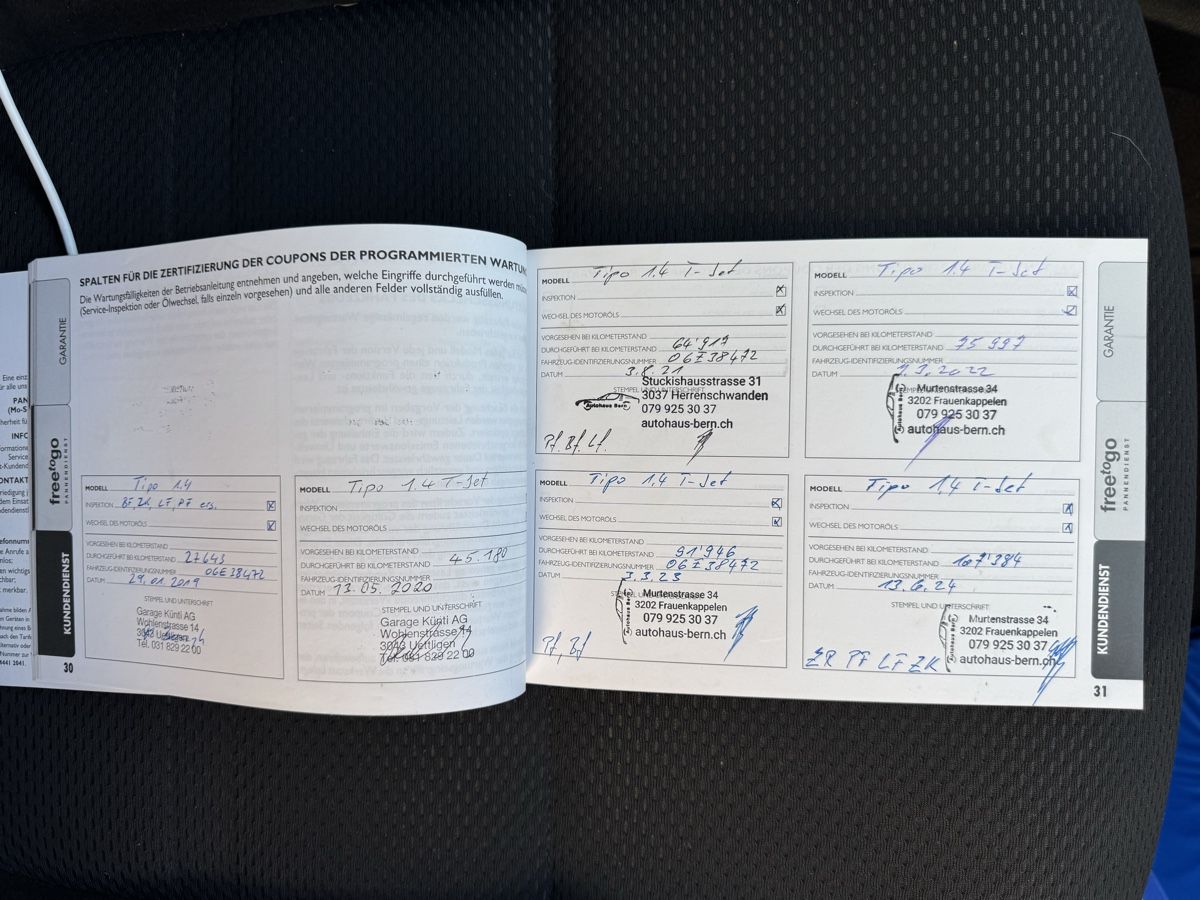 GARANTIE
freetogo
PANNENDIENST
KUNDENDIENST
30
SPALTEN FÜR DIE ZERTIFIZIERUNG DER COUPONS DER PROGRAMMIERTEN WARTU
Die Wartungsfälligkeiten der Betriebsanleitung entnehmen und angeben, welche Eingriffe durchgeführt werden
(Service-Inspektion oder Ölwechsel, falls einzeln vorgesehen) und alle anderen Felder vollständig ausfüllen.
MODELL Tipo 1.4
INSPEKTION BF, ZK, LF, PF ers.
WECHSEL DES MOTORÖLS
VORGESEHEN BEI KILOMETERSTAND
DURCHGEFÜHRT BEI KILOMETERSTAND 27643
FAHRZEUG-IDENTIFIZIERUNGSNUMMER 06E38472
DATUM 29.01.2019
STEMPEL UND UNTERSCHRIFT
Garage Künti AG
Wohlenstrasse 14
3043 Uettligen
Tel. 031 829 22 00
MODELL Tipo 1.4 T-Jet
INSPEKTION
WECHSEL DES MOTORÖLS
VORGESEHEN BEI KILOMETERSTAND
DURCHGEFÜHRT BEI KILOMETERSTAND 45.180
FAHRZEUG-IDENTIFIZIERUNGSNUMMER
DATUM 13.05.2020
STEMPEL UND UNTERSCHRIFT
Garage Künti AG
Wohlenstrasse 14
3043 Uettligen
Tel. 031 829 22 00
MODELL Tipo 1.4 T-Jet
INSPEKTION
WECHSEL DES MOTORÖLS
VORGESEHEN BEI KILOMETERSTAND
DURCHGEFÜHRT BEI KILOMETERSTAND 64'917
FAHRZEUG-IDENTIFIZIERUNGSNUMMER 06I38472
DATUM 3.8.21
STEMPEL UND UNTERSCHRIFT
Autohaus Bern
Stuckishausstrasse 31
3037 Herrenschwanden
079 925 30 37
autohaus-bern.ch
Pf. Bf. Lf.
MODELL Tipo 1.4 T-Jet
INSPEKTION
WECHSEL DES MOTORÖLS
VORGESEHEN BEI KILOMETERSTAND
DURCHGEFÜHRT BEI KILOMETERSTAND 75 997
FAHRZEUG-IDENTIFIZIERUNGSNUMMER
DATUM
Autohaus Bern
Murtenstrasse 34
3202 Frauenkappelen
079 925 30 37
autohaus-bern.ch
MODELL Tipo 1.4 T-Jet
INSPEKTION
WECHSEL DES MOTORÖLS
VORGESEHEN BEI KILOMETERSTAND
DURCHGEFÜHRT BEI KILOMETERSTAND 91'946
FAHRZEUG-IDENTIFIZIERUNGSNUMMER 06I38472
DATUM 3.3.23
Autohaus Bern
Murtenstrasse 34
3202 Frauenkappelen
079 925 30 37
autohaus-bern.ch
Pf, Bf
MODELL Tipo 1.4 T-Jet
INSPEKTION
WECHSEL DES MOTORÖLS
VORGESEHEN BEI KILOMETERSTAND
DURCHGEFÜHRT BEI KILOMETERSTAND 107'384
FAHRZEUG-IDENTIFIZIERUNGSNUMMER
DATUM 13.6.24
STEMPEL UND UNTERSCHRIFT
Autohaus Bern
Murtenstrasse 34
3202 Frauenkappelen
079 925 30 37
autohaus-bern.ch
ZR PF LF ZK
GARANTIE
freetogo
PANNENDIENST
KUNDENDIENST
31